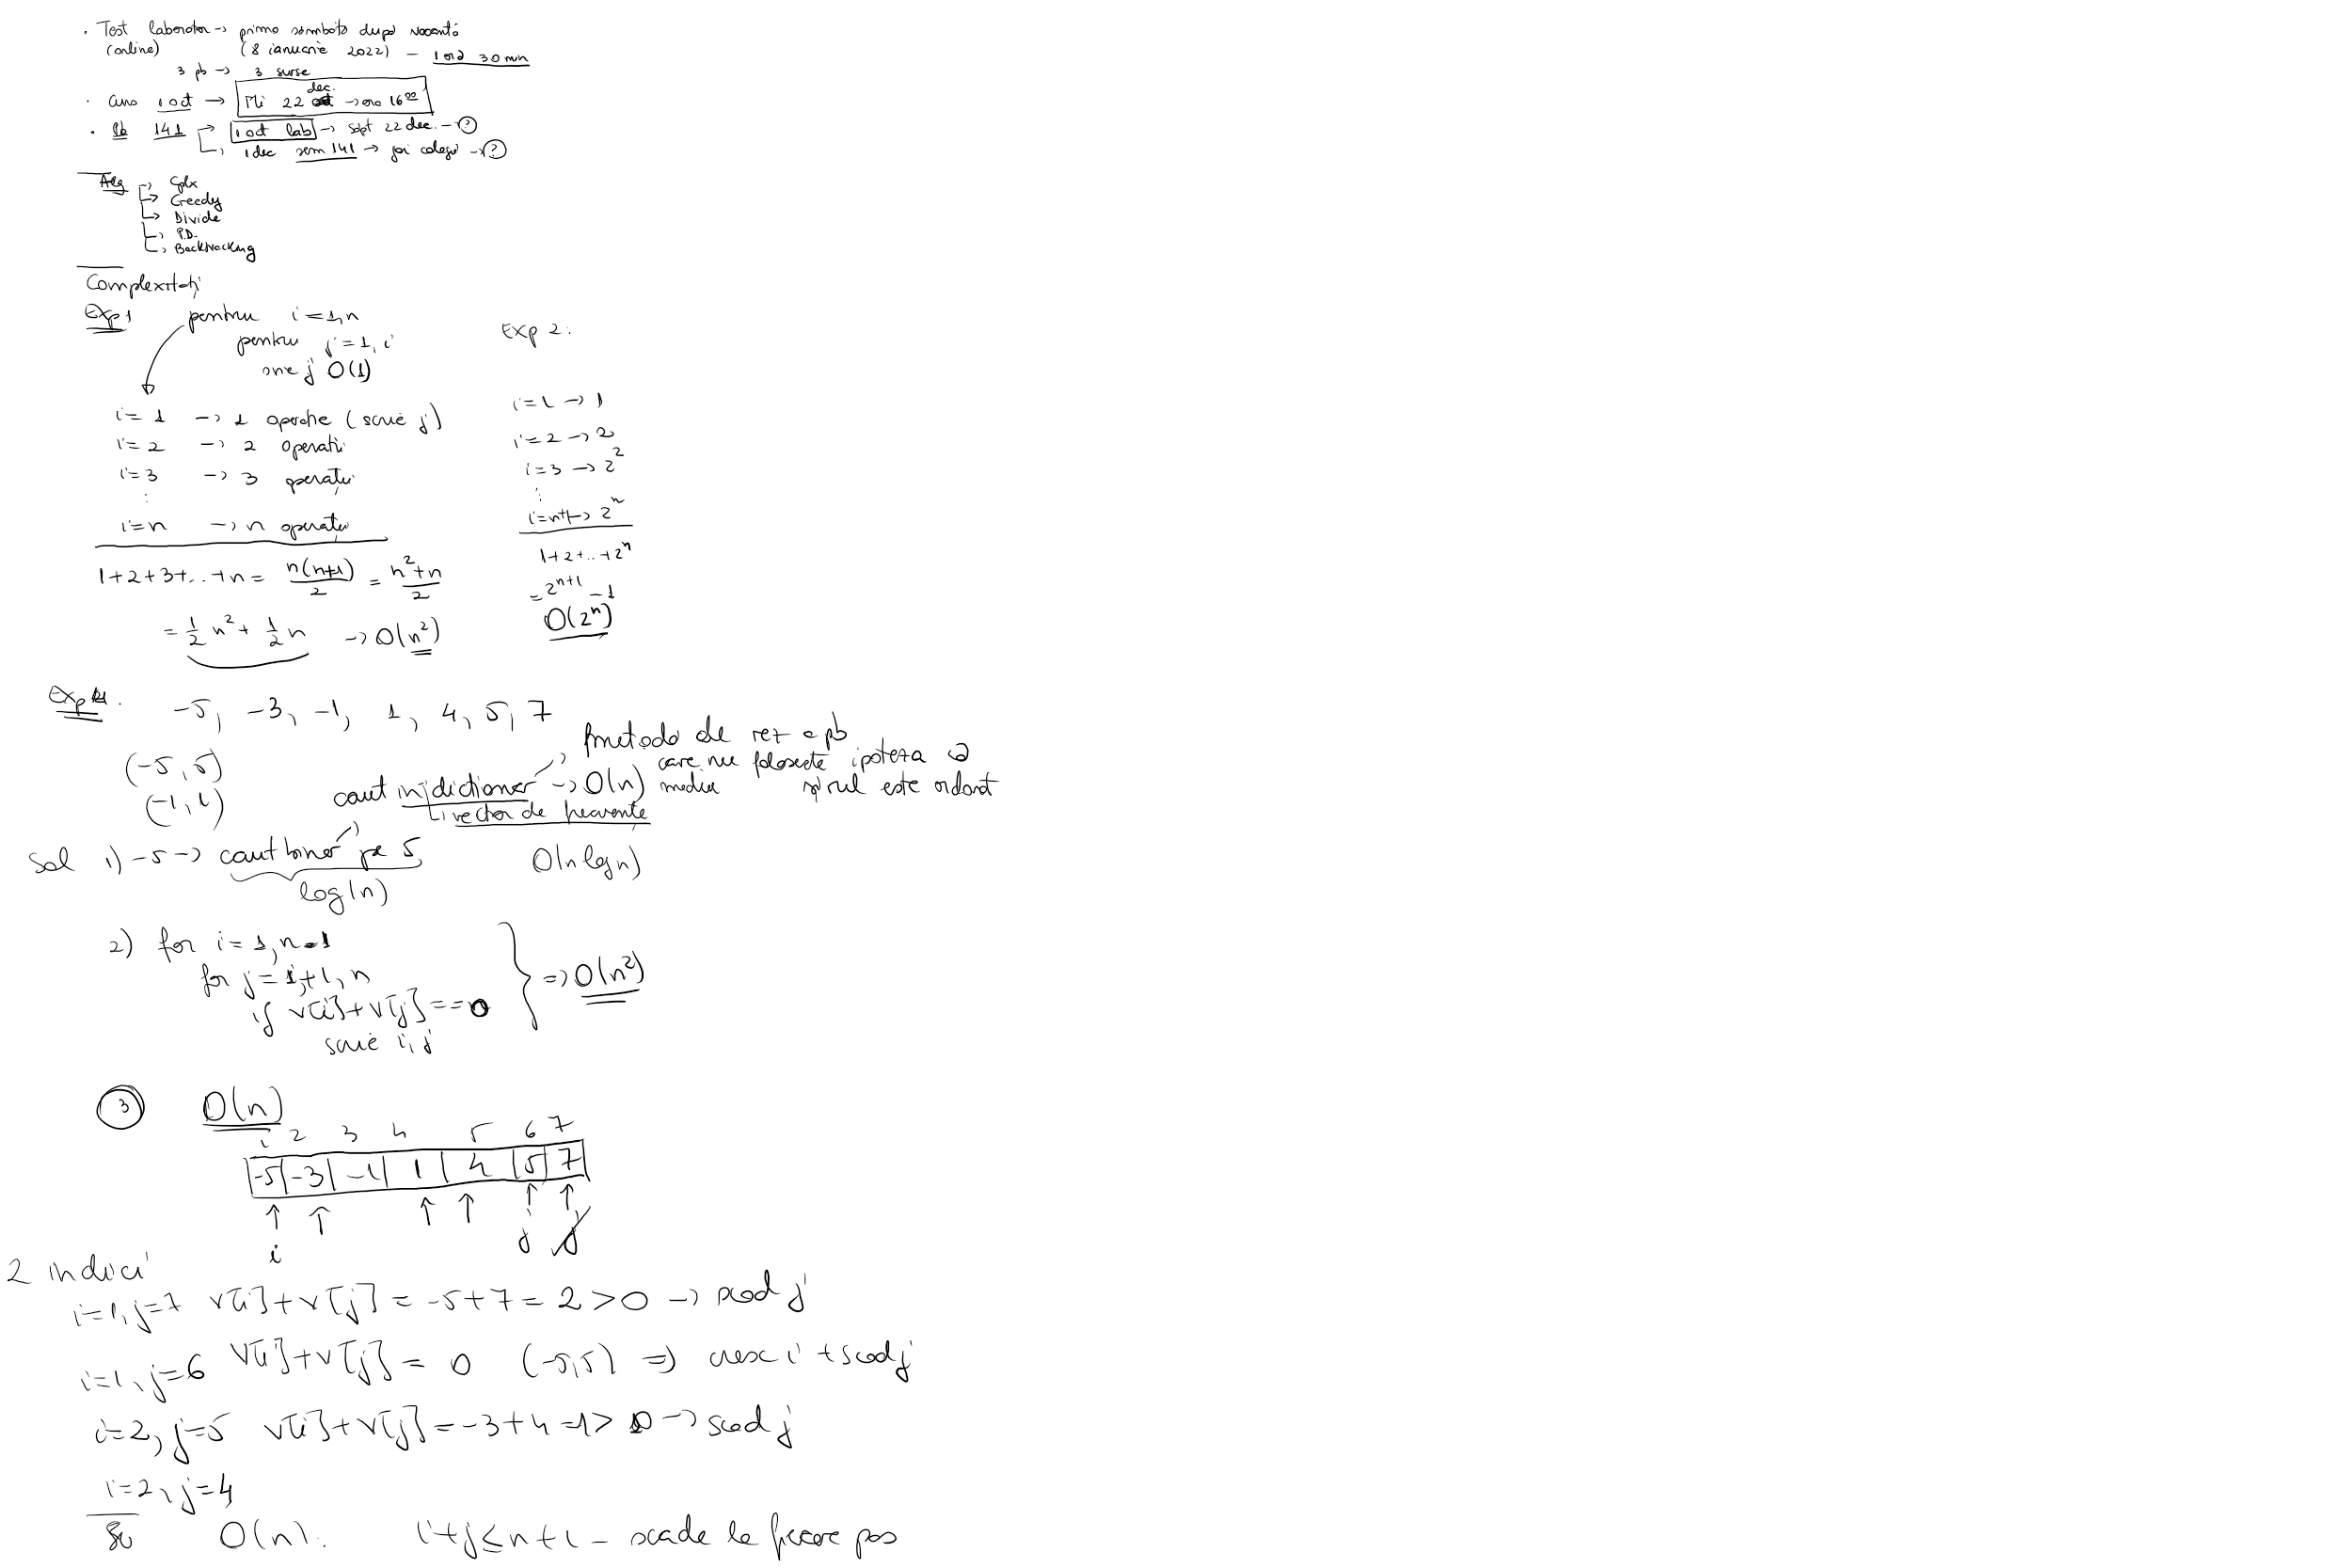 . Test laborator → prima sâmbătă după vacanță
(online) (8 ianuarie 2022) - 1 oră 30 min
3 pb → 3 surse
. 1 oct → Mi 22 dec. → ora 16⁰⁰
. 141 → 1 oct lab → sapt 22 dec. → ?
→ 1 dec sem 141 → joi colegii → ?
Alg → Cplx
→ Greedy
→ Divide
→ P.D.
→ Backtracking
Complexități
Exp 1 pentru i = 1, n
pentru j = 1, i
scrie j O(1)
i = 1 → 1 operație (scrie j)
i = 2 → 2 operații
i = 3 → 3 operații
⋮
i = n → n operații
1+2+3+...+n = n(n+1)/2 = (n²+n)/2
= 1/2 n² + 1/2 n → O(n²)
Exp 2:
i=1 → 1
i=2 → 2
i=3 → 2²
⋮
i=n+1 → 2ⁿ
1+2+..+2ⁿ
= 2ⁿ⁺¹ - 1
O(2ⁿ)
Exp
-5, -3, -1, 1, 4, 5, 7
(-5, 5)
(-1, 1)
metodă de rez a pb
care nu folosește ipoteza că
șirul este ordonat
caut în dicționar → O(n) mediu
vector de frecvențe
Sol 1) -5 → caut binar pe 5 O(n log n)
log(n)
2) for i = 1, n-1
for j = i+1, n
if v[i]+v[j]==0
scrie i, j
=> O(n²)
3 O(n)
1 2 3 4 5 6 7
-5 -3 -1 1 4 5 7
i j j
2 indici
i=1, j=7 v[i]+v[j] = -5+7 = 2 > 0 → scad j
i=1, j=6 v[i]+v[j] = 0 (-5,5) => cresc i + scad j
i=2, j=5 v[i]+v[j] = -3+4 = 1 > 0 → scad j
i=2, j=4
O(n). i+j ≤ n+1 - scade la fiecare pas